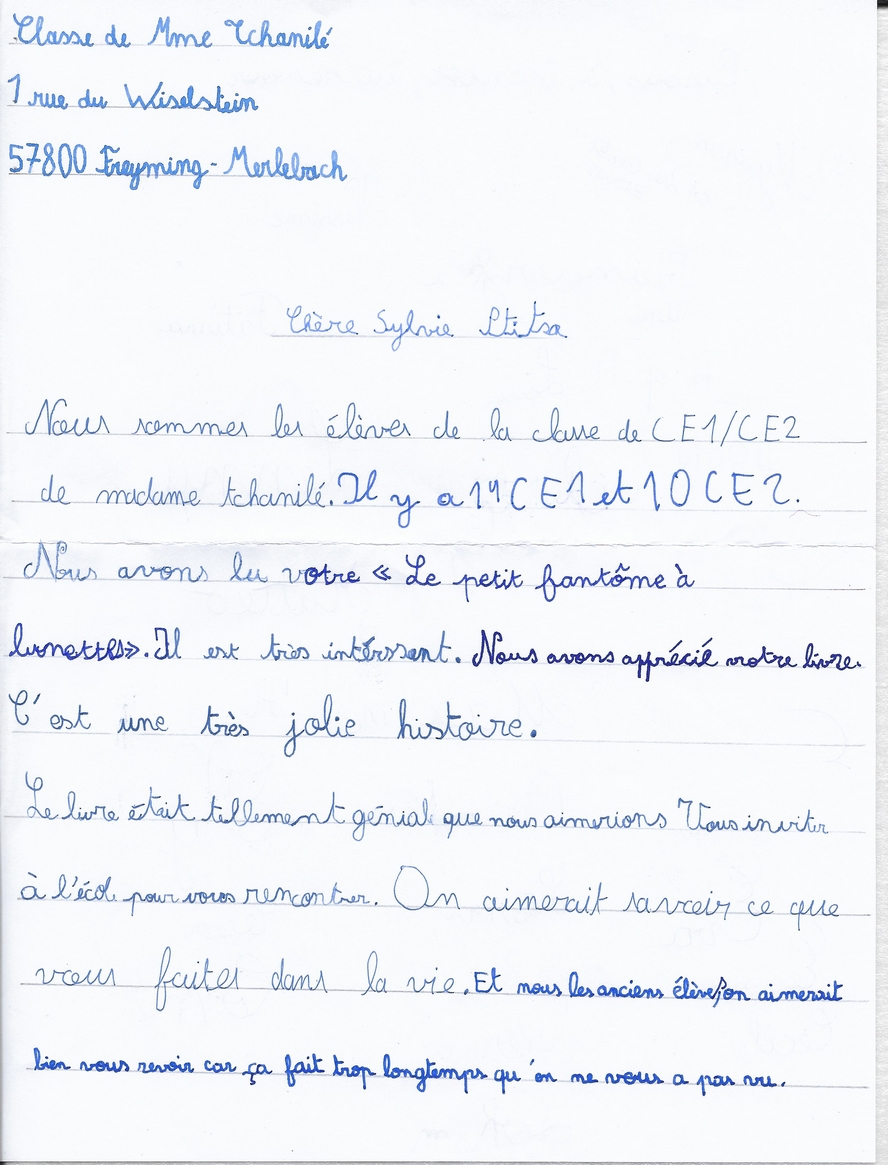 Classe de Mme Tchanilé
1 rue du Wiselstein
57800 Freyming-Merlebach
Chère Sylvie Ptitsa
Nous sommes les élèves de la classe de CE1/CE2
de madame tchanilé. Il y a 14 CE1 et 10 CE2.
Nous avons lu votre « Le petit fantôme à
lunettes». Il est très intérssant. Nous avons apprécié votre livre.
C'est une très jolie histoire.
Le livre était tellement génial que nous aimerions Vous inviter
à l'école pour vous rencontrer. On aimerait savoir ce que
vous faites dans la vie. Et nous les anciens élèves, on aimerait
bien vous revoir car ça fait trop longtemps qu'on ne vous a pas vu.